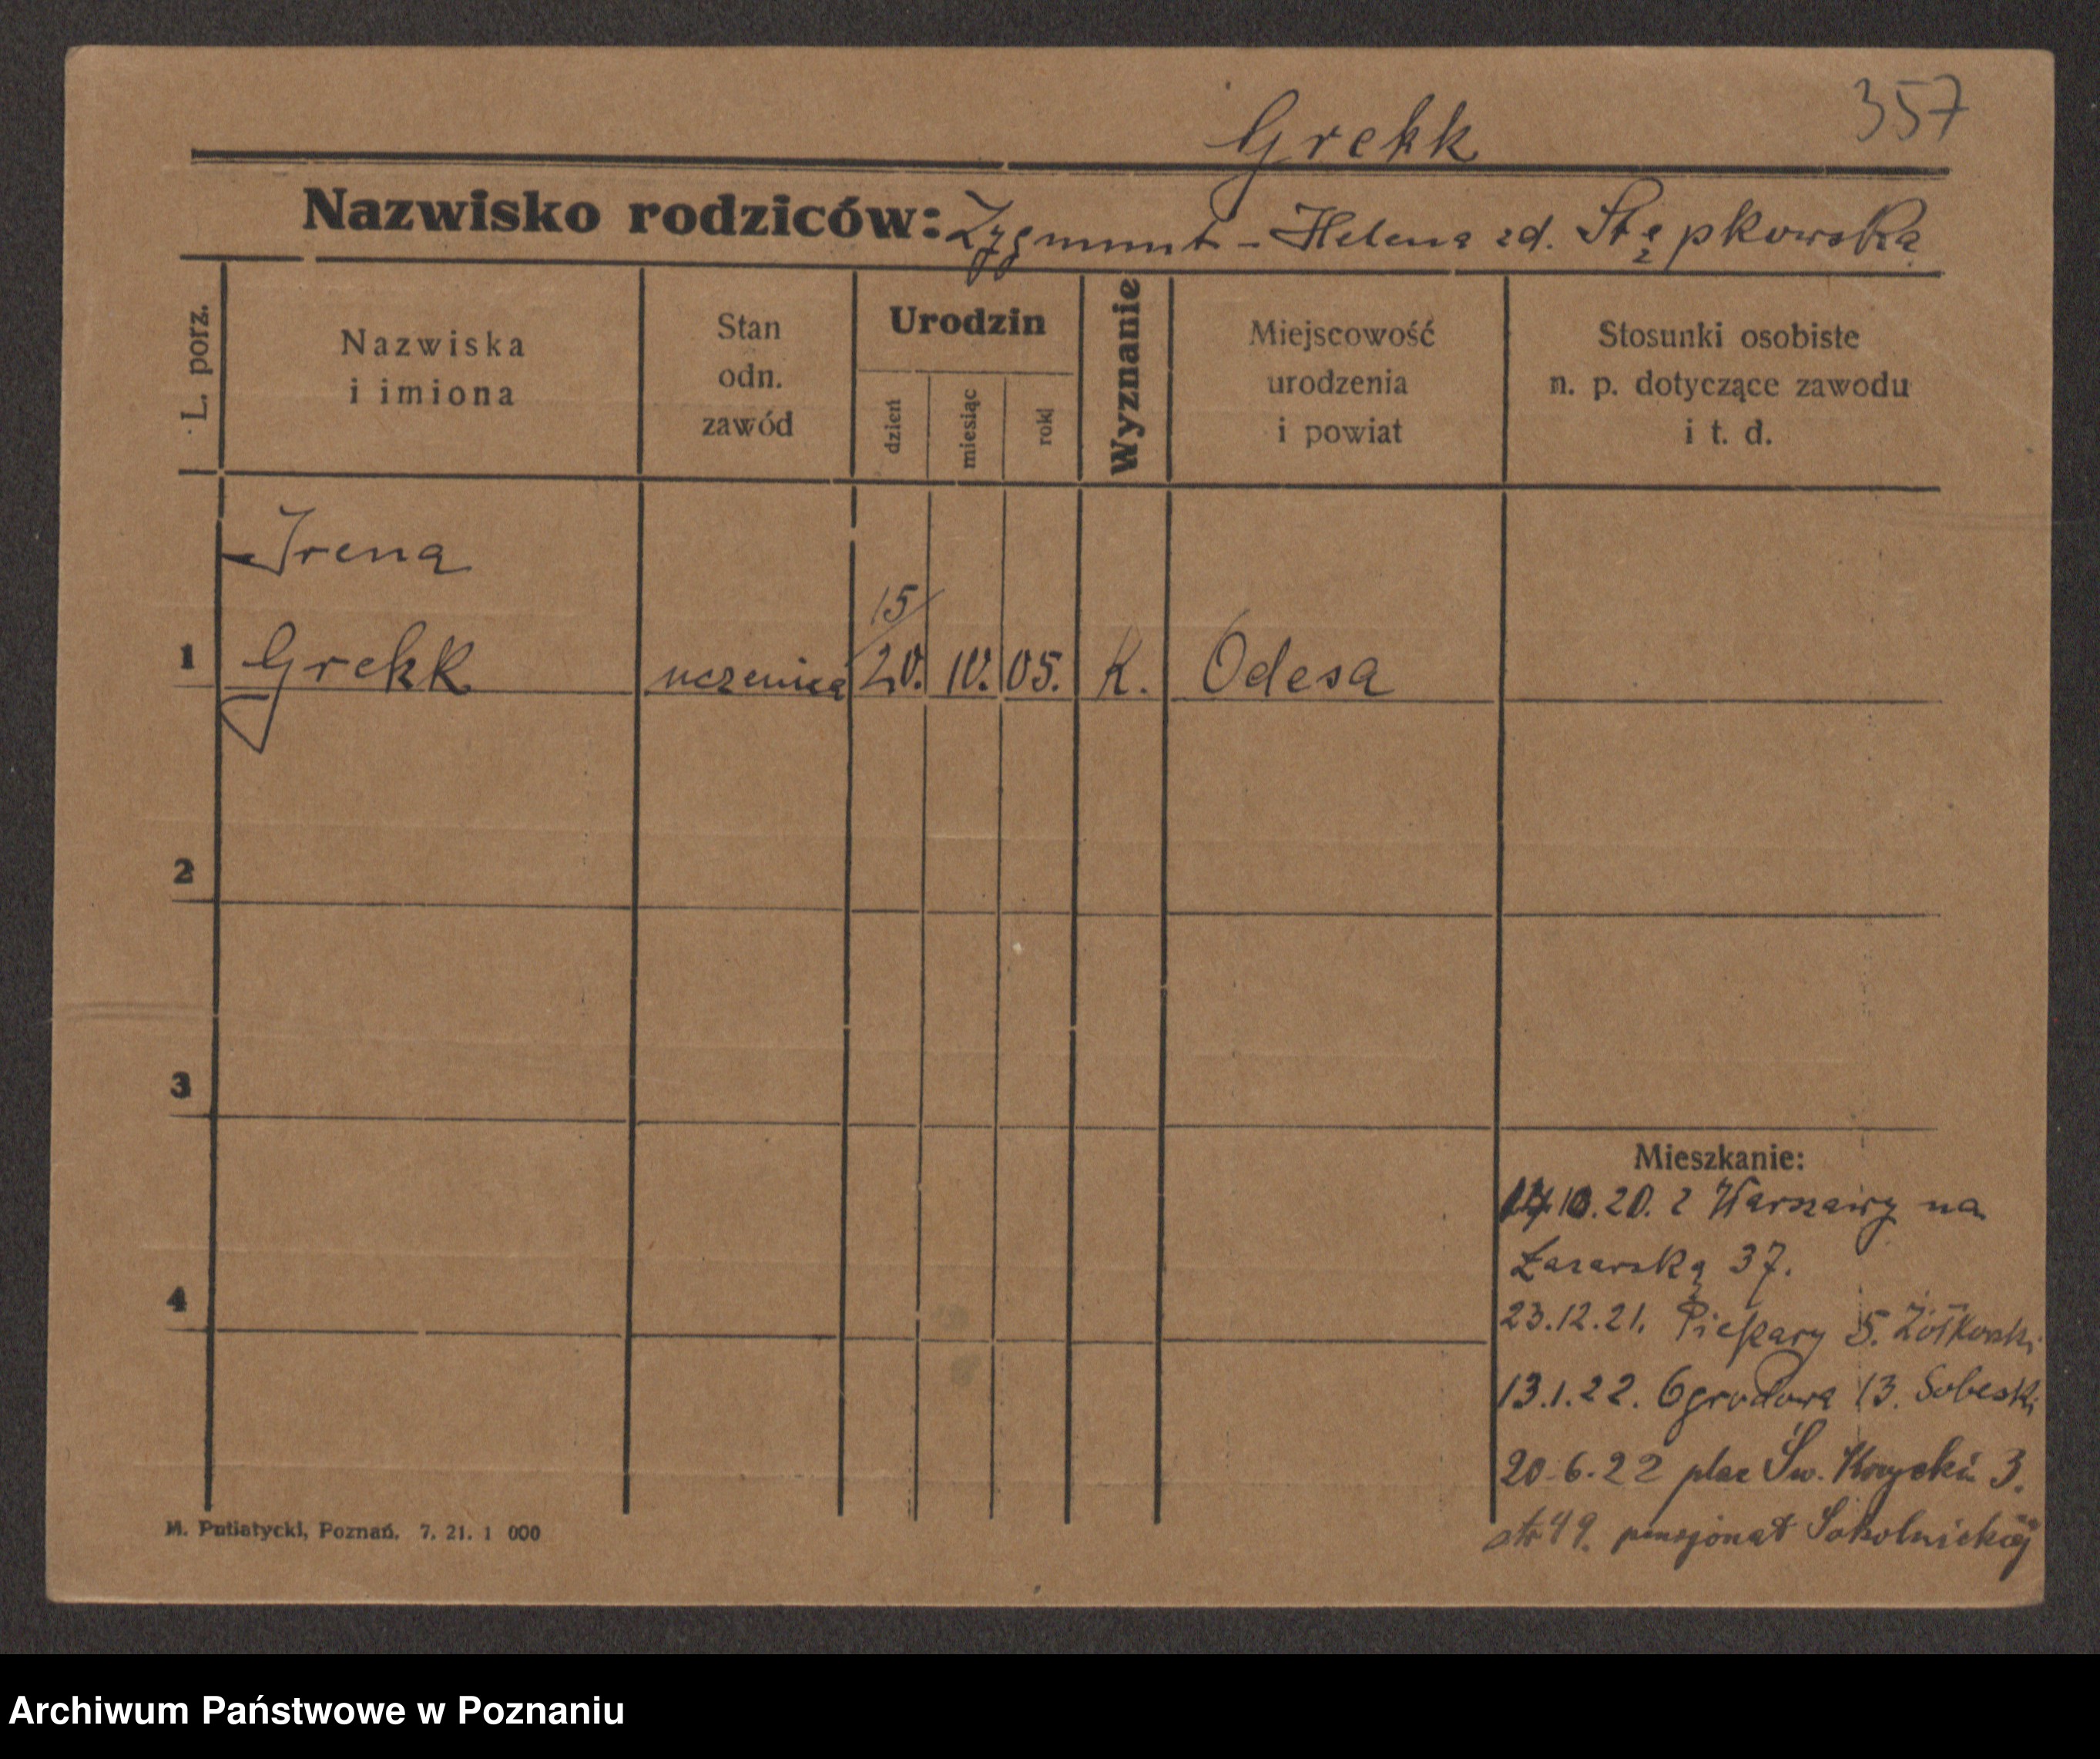 357
Grekk
Nazwisko rodziców: Zygmunt - Helena zd. Stępkowska
L. porz.
Nazwiska
i imiona
Stan
odn.
zawód
Urodzin
dzień
miesiąc
rok
Wyznanie
Miejscowość
urodzenia
i powiat
Stosunki osobiste
n. p. dotyczące zawodu
i t. d.
Irena
15/
1 Grekk uczenica 20. 10. 05. K. Odesa
2
3
4
Mieszkanie:
10.20. z Warszawy na
Łazarską 37.
23.12.21. Piekary 5. Żółkowski
13.1.22. Ogrodowa 13. Sobeski
20.6.22 plac Św. Krzyski 3.
str 49. pensjonat Sokolnickiej
M. Putiatycki, Poznań. 7. 21. 1 000
Archiwum Państwowe w Poznaniu